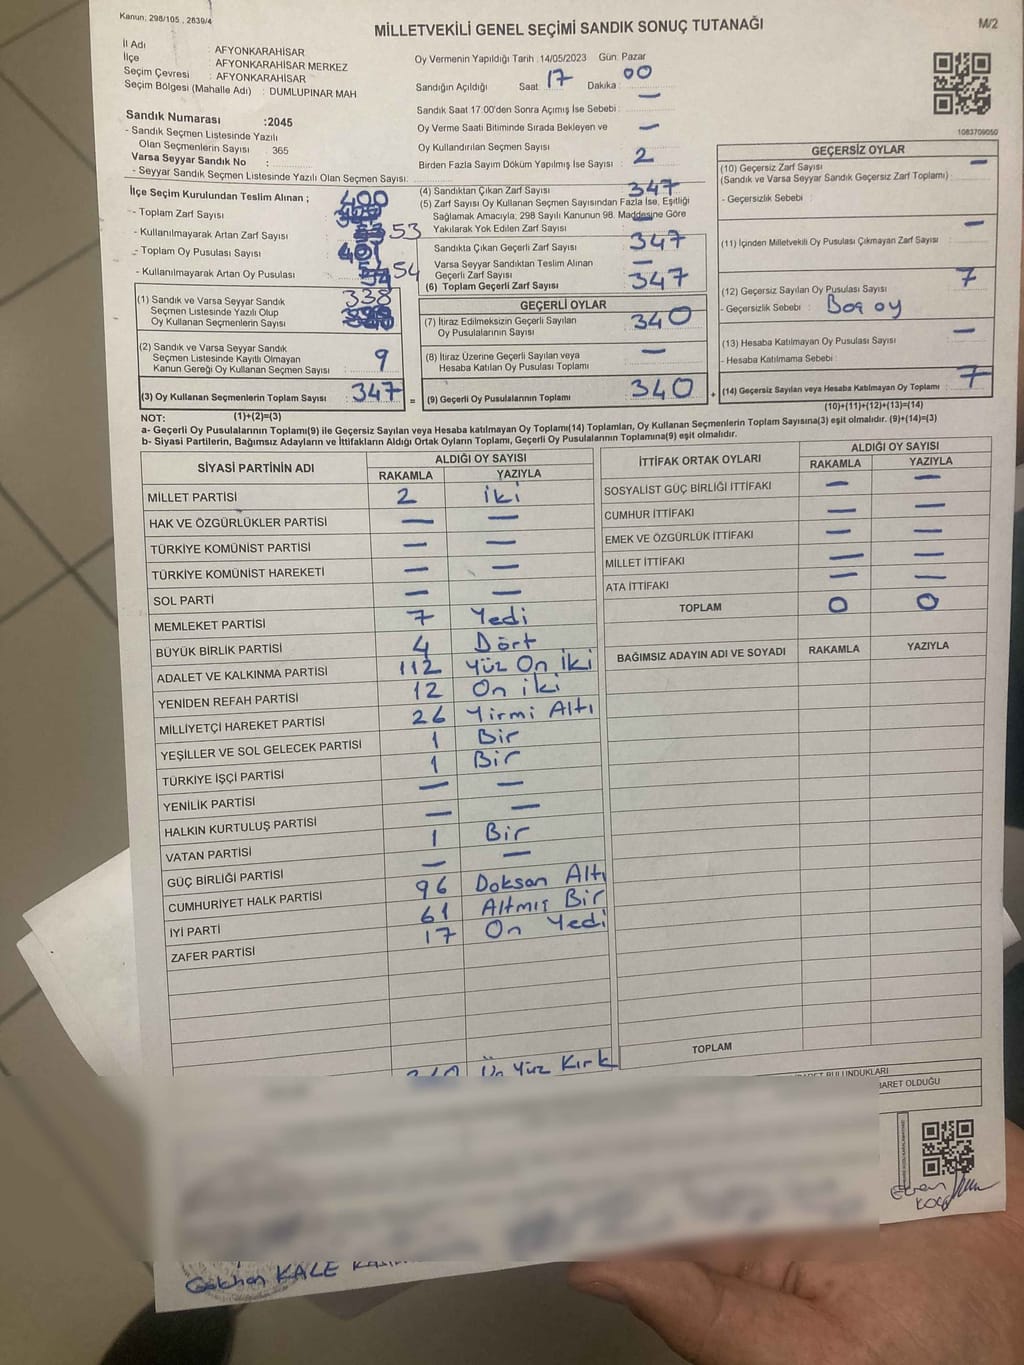 Kanun: 298/105 , 2839/4
MİLLETVEKİLİ GENEL SEÇİMİ SANDIK SONUÇ TUTANAĞI
M/2
İl Adı : AFYONKARAHİSAR
İlçe : AFYONKARAHİSAR MERKEZ
Seçim Çevresi : AFYONKARAHİSAR
Seçim Bölgesi (Mahalle Adı) : DUMLUPINAR MAH
Sandık Numarası :2045
- Sandık Seçmen Listesinde Yazılı
Olan Seçmenlerin Sayısı : 365
Varsa Seyyar Sandık No :
- Seyyar Sandık Seçmen Listesinde Yazılı Olan Seçmen Sayısı:
Oy Vermenin Yapıldığı Tarih :14/05/2023 Gün: Pazar
Sandığın Açıldığı Saat : 17 Dakika : 00
Sandık Saat 17:00'den Sonra Açımış İse Sebebi : —
Oy Verme Saati Bitiminde Sırada Bekleyen ve
Oy Kullandırılan Seçmen Sayısı : —
Birden Fazla Sayım Döküm Yapılmış İse Sayısı : 2
1083709050
İlçe Seçim Kurulundan Teslim Alınan ;
- Toplam Zarf Sayısı : 400
- Kullanılmayarak Artan Zarf Sayısı : 53
- Toplam Oy Pusulası Sayısı : 401
- Kullanılmayarak Artan Oy Pusulası : 54
(1) Sandık ve Varsa Seyyar Sandık
Seçmen Listesinde Yazılı Olup
Oy Kullanan Seçmenlerin Sayısı : 338
(2) Sandık ve Varsa Seyyar Sandık
Seçmen Listesinde Kayıtlı Olmayan
Kanun Gereği Oy Kullanan Seçmen Sayısı : 9
(3) Oy Kullanan Seçmenlerin Toplam Sayısı : 347
(1)+(2)=(3)
(4) Sandıktan Çıkan Zarf Sayısı : 347
(5) Zarf Sayısı Oy Kullanan Seçmen Sayısından Fazla İse, Eşitliği
Sağlamak Amacıyla, 298 Sayılı Kanunun 98. Maddesine Göre
Yakılarak Yok Edilen Zarf Sayısı : —
Sandıkta Çıkan Geçerli Zarf Sayısı : 347
Varsa Seyyar Sandıktan Teslim Alınan
Geçerli Zarf Sayısı : —
(6) Toplam Geçerli Zarf Sayısı : 347
GEÇERLİ OYLAR
(7) İtiraz Edilmeksizin Geçerli Sayılan
Oy Pusulalarının Sayısı : 340
(8) İtiraz Üzerine Geçerli Sayılan veya
Hesaba Katılan Oy Pusulası Toplamı : —
= (9) Geçerli Oy Pusulalarının Toplamı : 340 +
GEÇERSİZ OYLAR
(10) Geçersiz Zarf Sayısı : —
(Sandık ve Varsa Seyyar Sandık Geçersiz Zarf Toplamı)
- Geçersizlik Sebebi :
(11) İçinden Milletvekili Oy Pusulası Çıkmayan Zarf Sayısı : —
(12) Geçersiz Sayılan Oy Pusulası Sayısı : 7
- Geçersizlik Sebebi : Boş oy
(13) Hesaba Katılmayan Oy Pusulası Sayısı : —
- Hesaba Katılmama Sebebi :
(14) Geçersiz Sayılan veya Hesaba Katılmayan Oy Toplamı : 7
(10)+(11)+(12)+(13)=(14)
NOT:
a- Geçerli Oy Pusulalarının Toplamı(9) ile Geçersiz Sayılan veya Hesaba katılmayan Oy Toplamı(14) Toplamları, Oy Kullanan Seçmenlerin Toplam Sayısına(3) eşit olmalıdır. (9)+(14)=(3)
b- Siyasi Partilerin, Bağımsız Adayların ve İttifakların Aldığı Ortak Oyların Toplamı, Geçerli Oy Pusulalarının Toplamına(9) eşit olmalıdır.
SİYASİ PARTİNİN ADI ALDIĞI OY SAYISI
RAKAMLA YAZIYLA
MİLLET PARTİSİ 2 iki
HAK VE ÖZGÜRLÜKLER PARTİSİ — —
TÜRKİYE KOMÜNİST PARTİSİ — —
TÜRKİYE KOMÜNİST HAREKETİ — —
SOL PARTİ — —
MEMLEKET PARTİSİ 7 Yedi
BÜYÜK BİRLİK PARTİSİ 4 Dört
ADALET VE KALKINMA PARTİSİ 112 Yüz On iki
YENİDEN REFAH PARTİSİ 12 On iki
MİLLİYETÇİ HAREKET PARTİSİ 26 Yirmi Altı
YEŞİLLER VE SOL GELECEK PARTİSİ 1 Bir
TÜRKİYE İŞÇİ PARTİSİ 1 Bir
YENİLİK PARTİSİ — —
HALKIN KURTULUŞ PARTİSİ — —
VATAN PARTİSİ 1 Bir
GÜÇ BİRLİĞİ PARTİSİ — —
CUMHURİYET HALK PARTİSİ 96 Doksan Altı
İYİ PARTİ 61 Altmış Bir
ZAFER PARTİSİ 17 On Yedi
340 Üç Yüz Kırk
İTTİFAK ORTAK OYLARI ALDIĞI OY SAYISI
RAKAMLA YAZIYLA
SOSYALİST GÜÇ BİRLİĞİ İTTİFAKI — —
CUMHUR İTTİFAKI — —
EMEK VE ÖZGÜRLÜK İTTİFAKI — —
MİLLET İTTİFAKI — —
ATA İTTİFAKI — —
TOPLAM 0 0
BAĞIMSIZ ADAYIN ADI VE SOYADI RAKAMLA YAZIYLA
TOPLAM
BULUNDUKLARI
İBARET OLDUĞU
Gökhan KALE